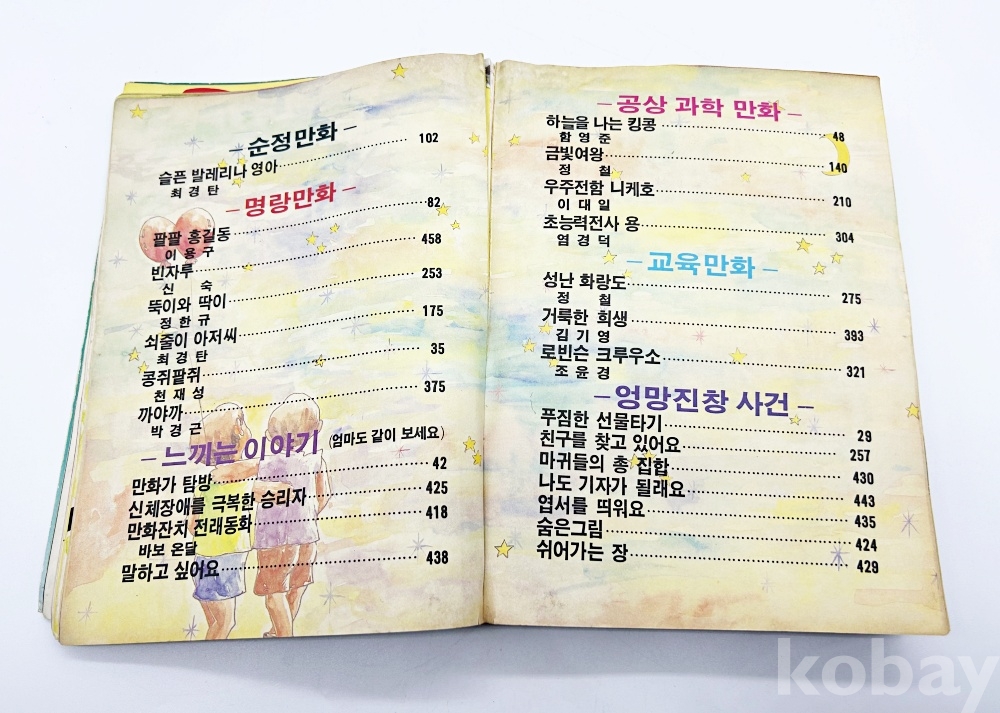 – 순정만화 –
슬픈 발레리나 영아 102
최경탄
– 명랑만화 –
팔팔 홍길동 82
이용구
빈자루 458
신 숙
뚝이와 딱이 253
정한규
쇠줄이 아저씨 175
최경탄
콩쥐팥쥐 35
천재성
까야까 375
박경근
– 느끼는 이야기 (엄마도 같이 보세요)
만화가 탐방 42
신체장애를 극복한 승리자 425
만화잔치 전래동화 418
바보 온달
말하고 싶어요 438
– 공상 과학 만화 –
하늘을 나는 킹콩 48
함영준
금빛여왕 140
정 철
우주전함 니케호 210
이대일
초능력전사 용 304
염경덕
– 교육만화 –
성난 화랑도 275
정 철
거룩한 희생 393
김기영
로빈슨 크루우소 321
조윤경
– 엉망진창 사건 –
푸짐한 선물타기 29
친구를 찾고 있어요 257
마귀들의 총 집합 430
나도 기자가 될래요 443
엽서를 띄워요 435
숨은그림 424
쉬어가는 장 429
kobay